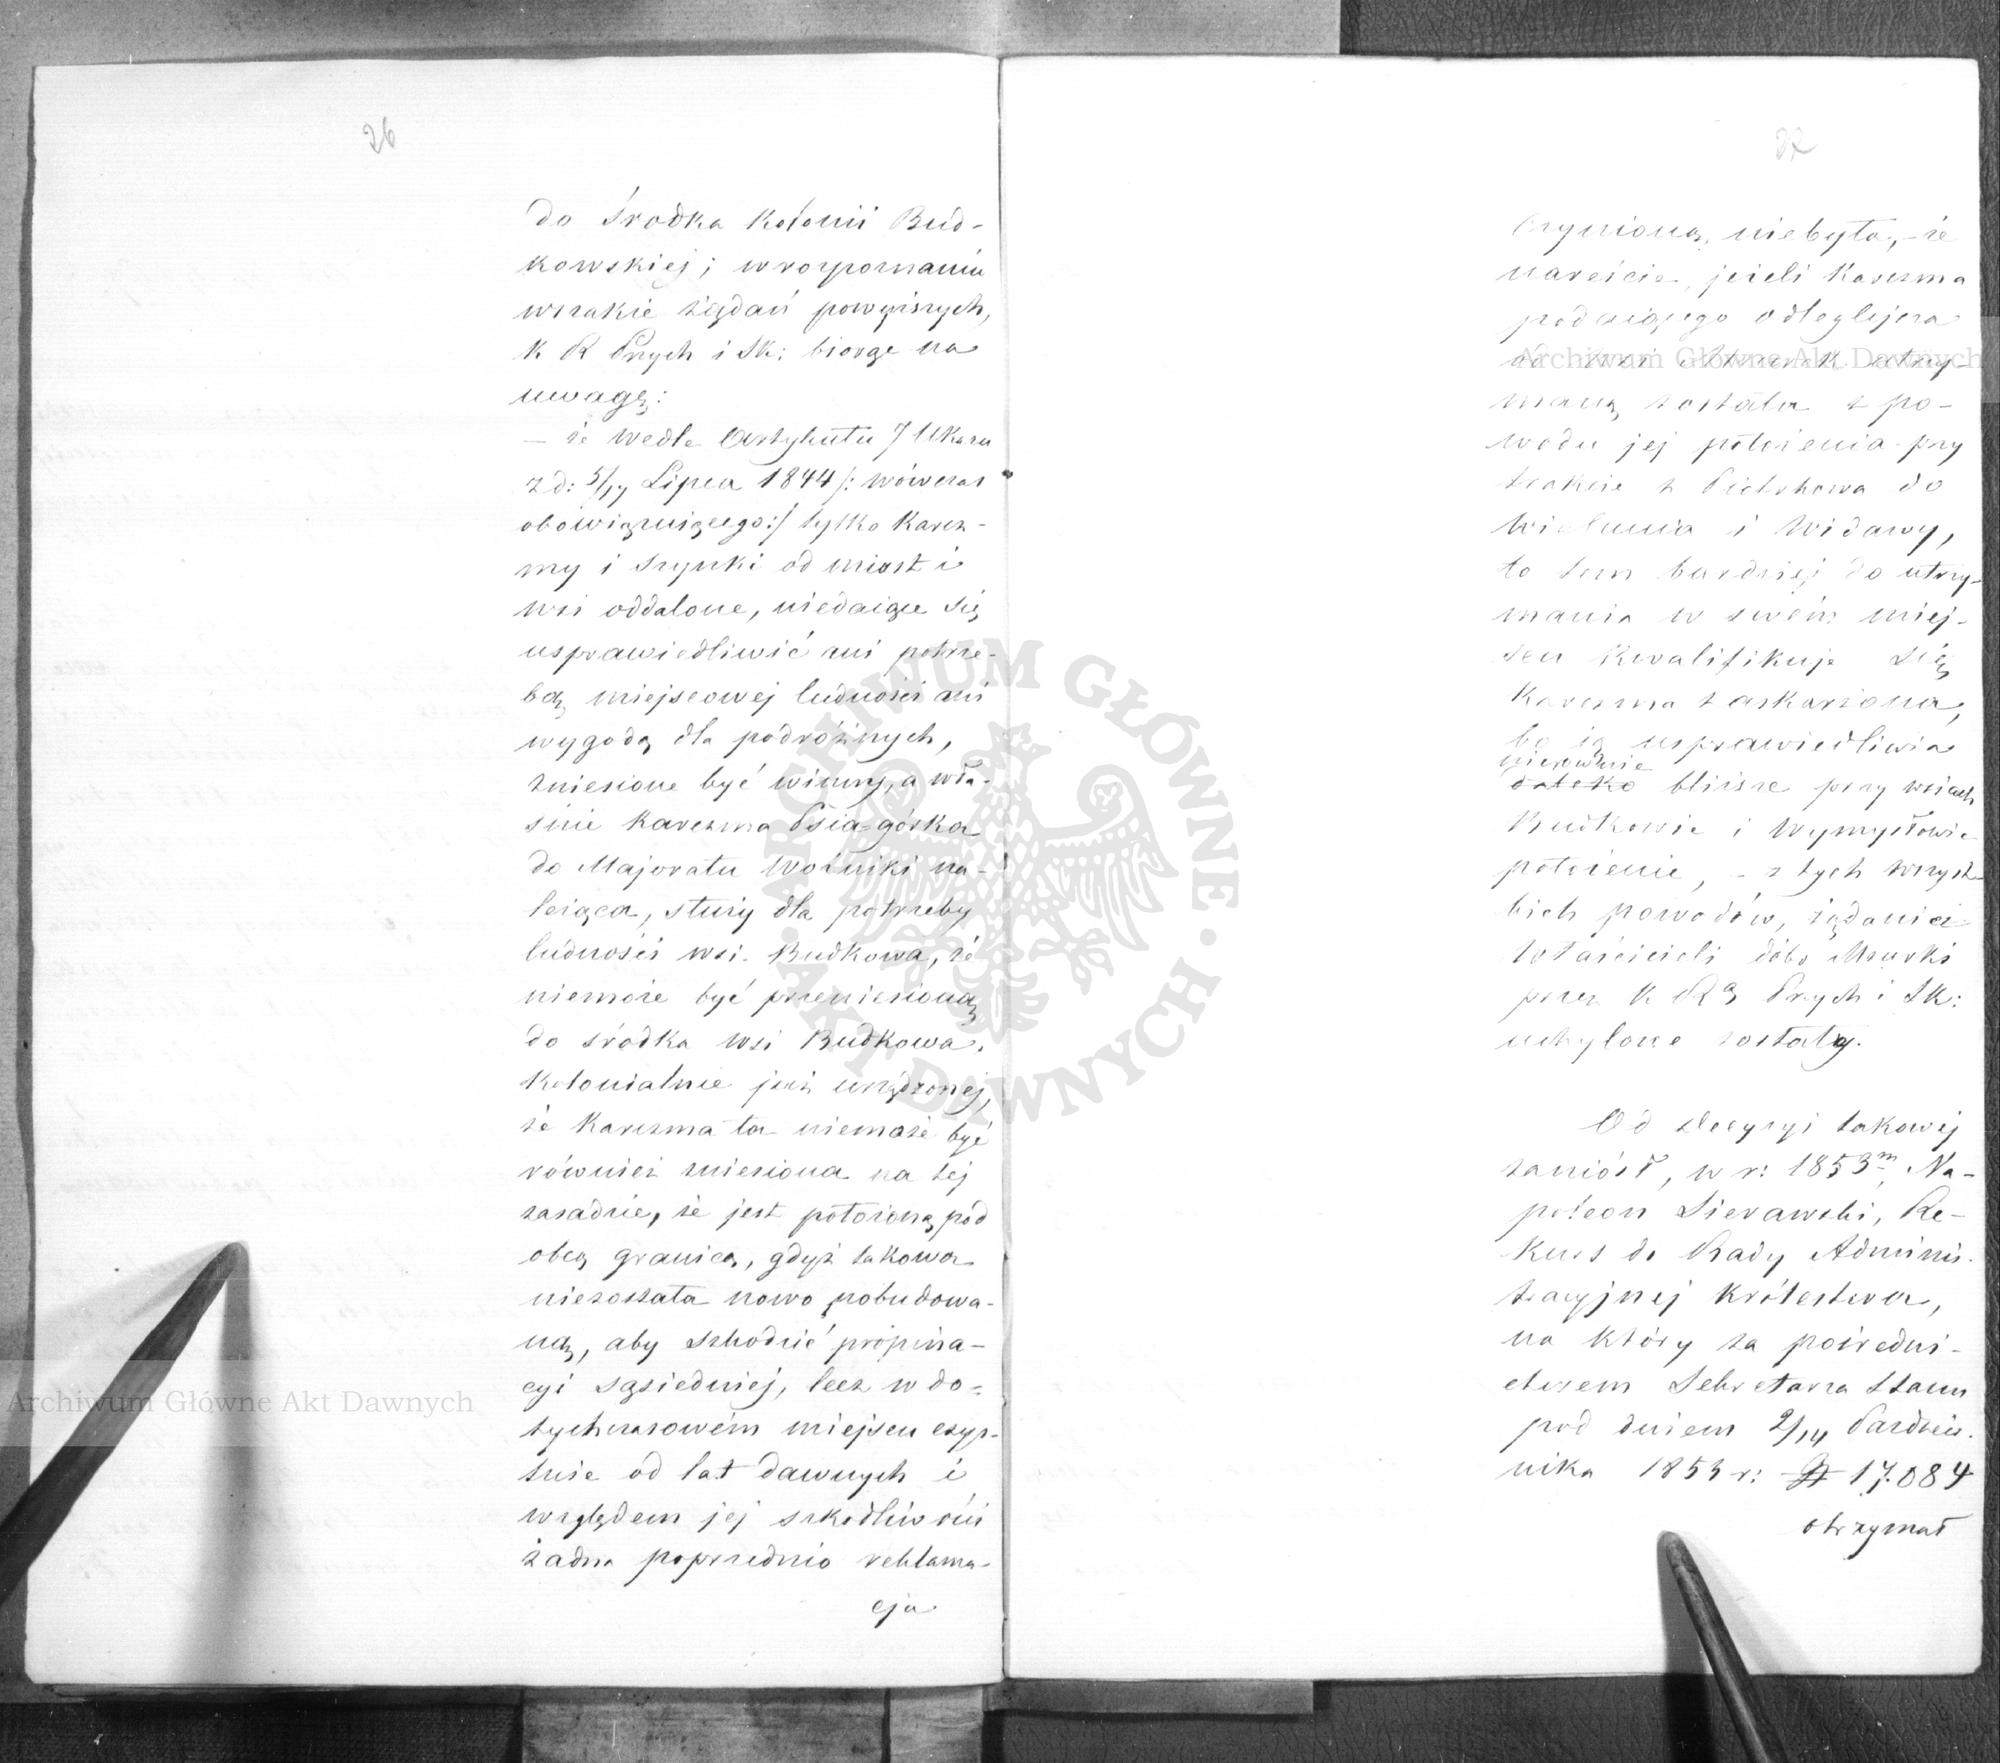 26
do środka kolonii Bud-
kowskiej; w rozpoznaniu
wszakże żądań powyższych,
K R Pzych i Sk: biorąc na
uwagę:
— że wedle Artykułu 7 Ukazu
z d: 5/17 Lipca 1844 /: wówczas
obowiązuiącego:/ tylko Karcz-
my i szynki od miast i
wsi oddalone, niedaiące się
usprawiedliwić ani potrze-
bą miejscowej ludności ani
wygodą dla podróżnych,
zniesione być winny, a wła-
śnie Karczma Psia-górka
do Majoratu Woźniki na-
leżąca, służy dla potrzeby
ludności wsi Budkowa, że
niemoże być przeniesioną
do środka wsi Budkowa,
kolonialnie już urządzonej,
że Karczma ta niemoże być
również zniesiona na tej
zasadzie, że jest położoną pod
obcą granicą, gdyż takowa
niezostała nowo pobudowa-
ną, aby szkodzić propina-
cyi sąsiedniej, lecz w do-
tychczasowém miejscu egzy-
stuie od lat dawnych i
względem jej szkodliwości
żadna poprzednio reklama-
cja
37
czynioną niebyła, — że
nareście, jeżeli Karczma
podaiącego odleglejsza
od wsi utrzy-
maną została z po-
wodu jej położenia przy
trakcie z Piotrkowa do
Wielunia i Widawy,
to tem bardziej do utrzy-
mania w swém miej-
scu kwalifikuje się
Karczma zaskarżona,
bo ią usprawiedliwia
nierównie
daleko bliższe przy wsiach
Budkowie i Wymysłowie
położenie, — z tych wszyst-
kich powodów, żądania
właścicieli dóbr Mzurki
przez K R Pzych i Sk:
uchylone zostały.
Od decyzyi takowej
zaniósł, w r: 1853m Na-
poleon Sierawski, Re-
kurs do Rady Adminis-
tracyjnej Królestwa,
na który za pośredni-
ctwem Sekretarza Stanu
pod dniem 2/14 Paździer-
nika 1853 r: № 17.084
otrzymał
Archiwum Główne Akt Dawnych
Archiwum Główne Akt Dawnych
ARCHIWUM GŁÓWNE · AKT DAWNYCH ·